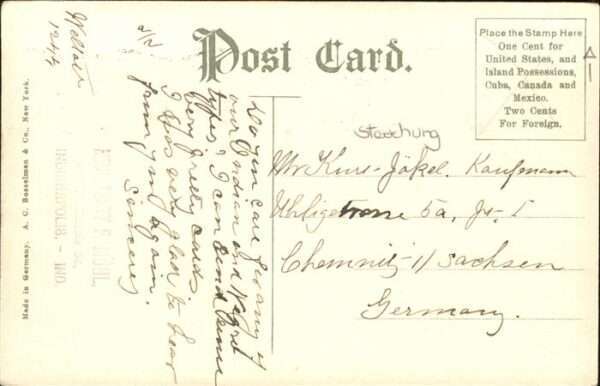 Post Card.
Place the Stamp Here
One Cent for
United States, and
Island Possessions,
Cuba, Canada and
Mexico.
Two Cents
For Foreign.
Made in Germany. A. C. Bosselman & Co., New York.
1244
INDIANAPOLIS - IND
Do you care for any of
our Indian and Negro
types; I can send some
very pretty cards
I was very glad to hear
from you again.
Sincerely
Mr Kurt Jäkel. Kaufmann
Uhligstrasse 5a,
Chemnitz i/ Sachsen
Germany.